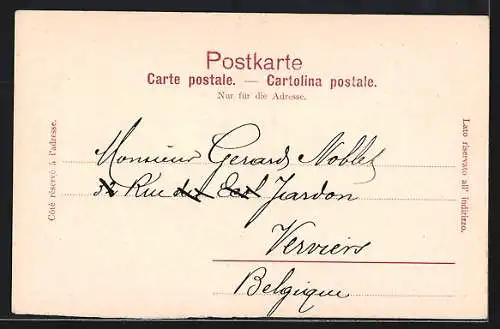 Postkarte
Carte postale. — Cartolina postale.
Nur für die Adresse.
Côté réservé à l'adresse.
Lato riservato all' indirizzo.
Monsieur Gerard Noblet
32 Rue Jardon
Verviers
Belgique